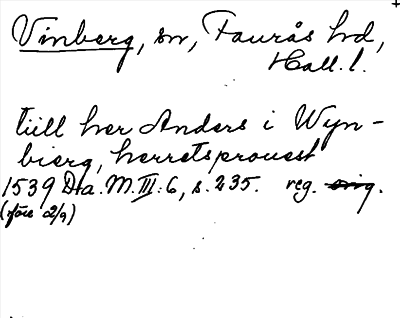 Vinberg, sn, Faurås hd,
Hall. l.
tiill her Anders i Wyn-
bierg, herretsprouest
1539 Da. M. III: 6, s. 235. reg. orig.
(före 2/9)